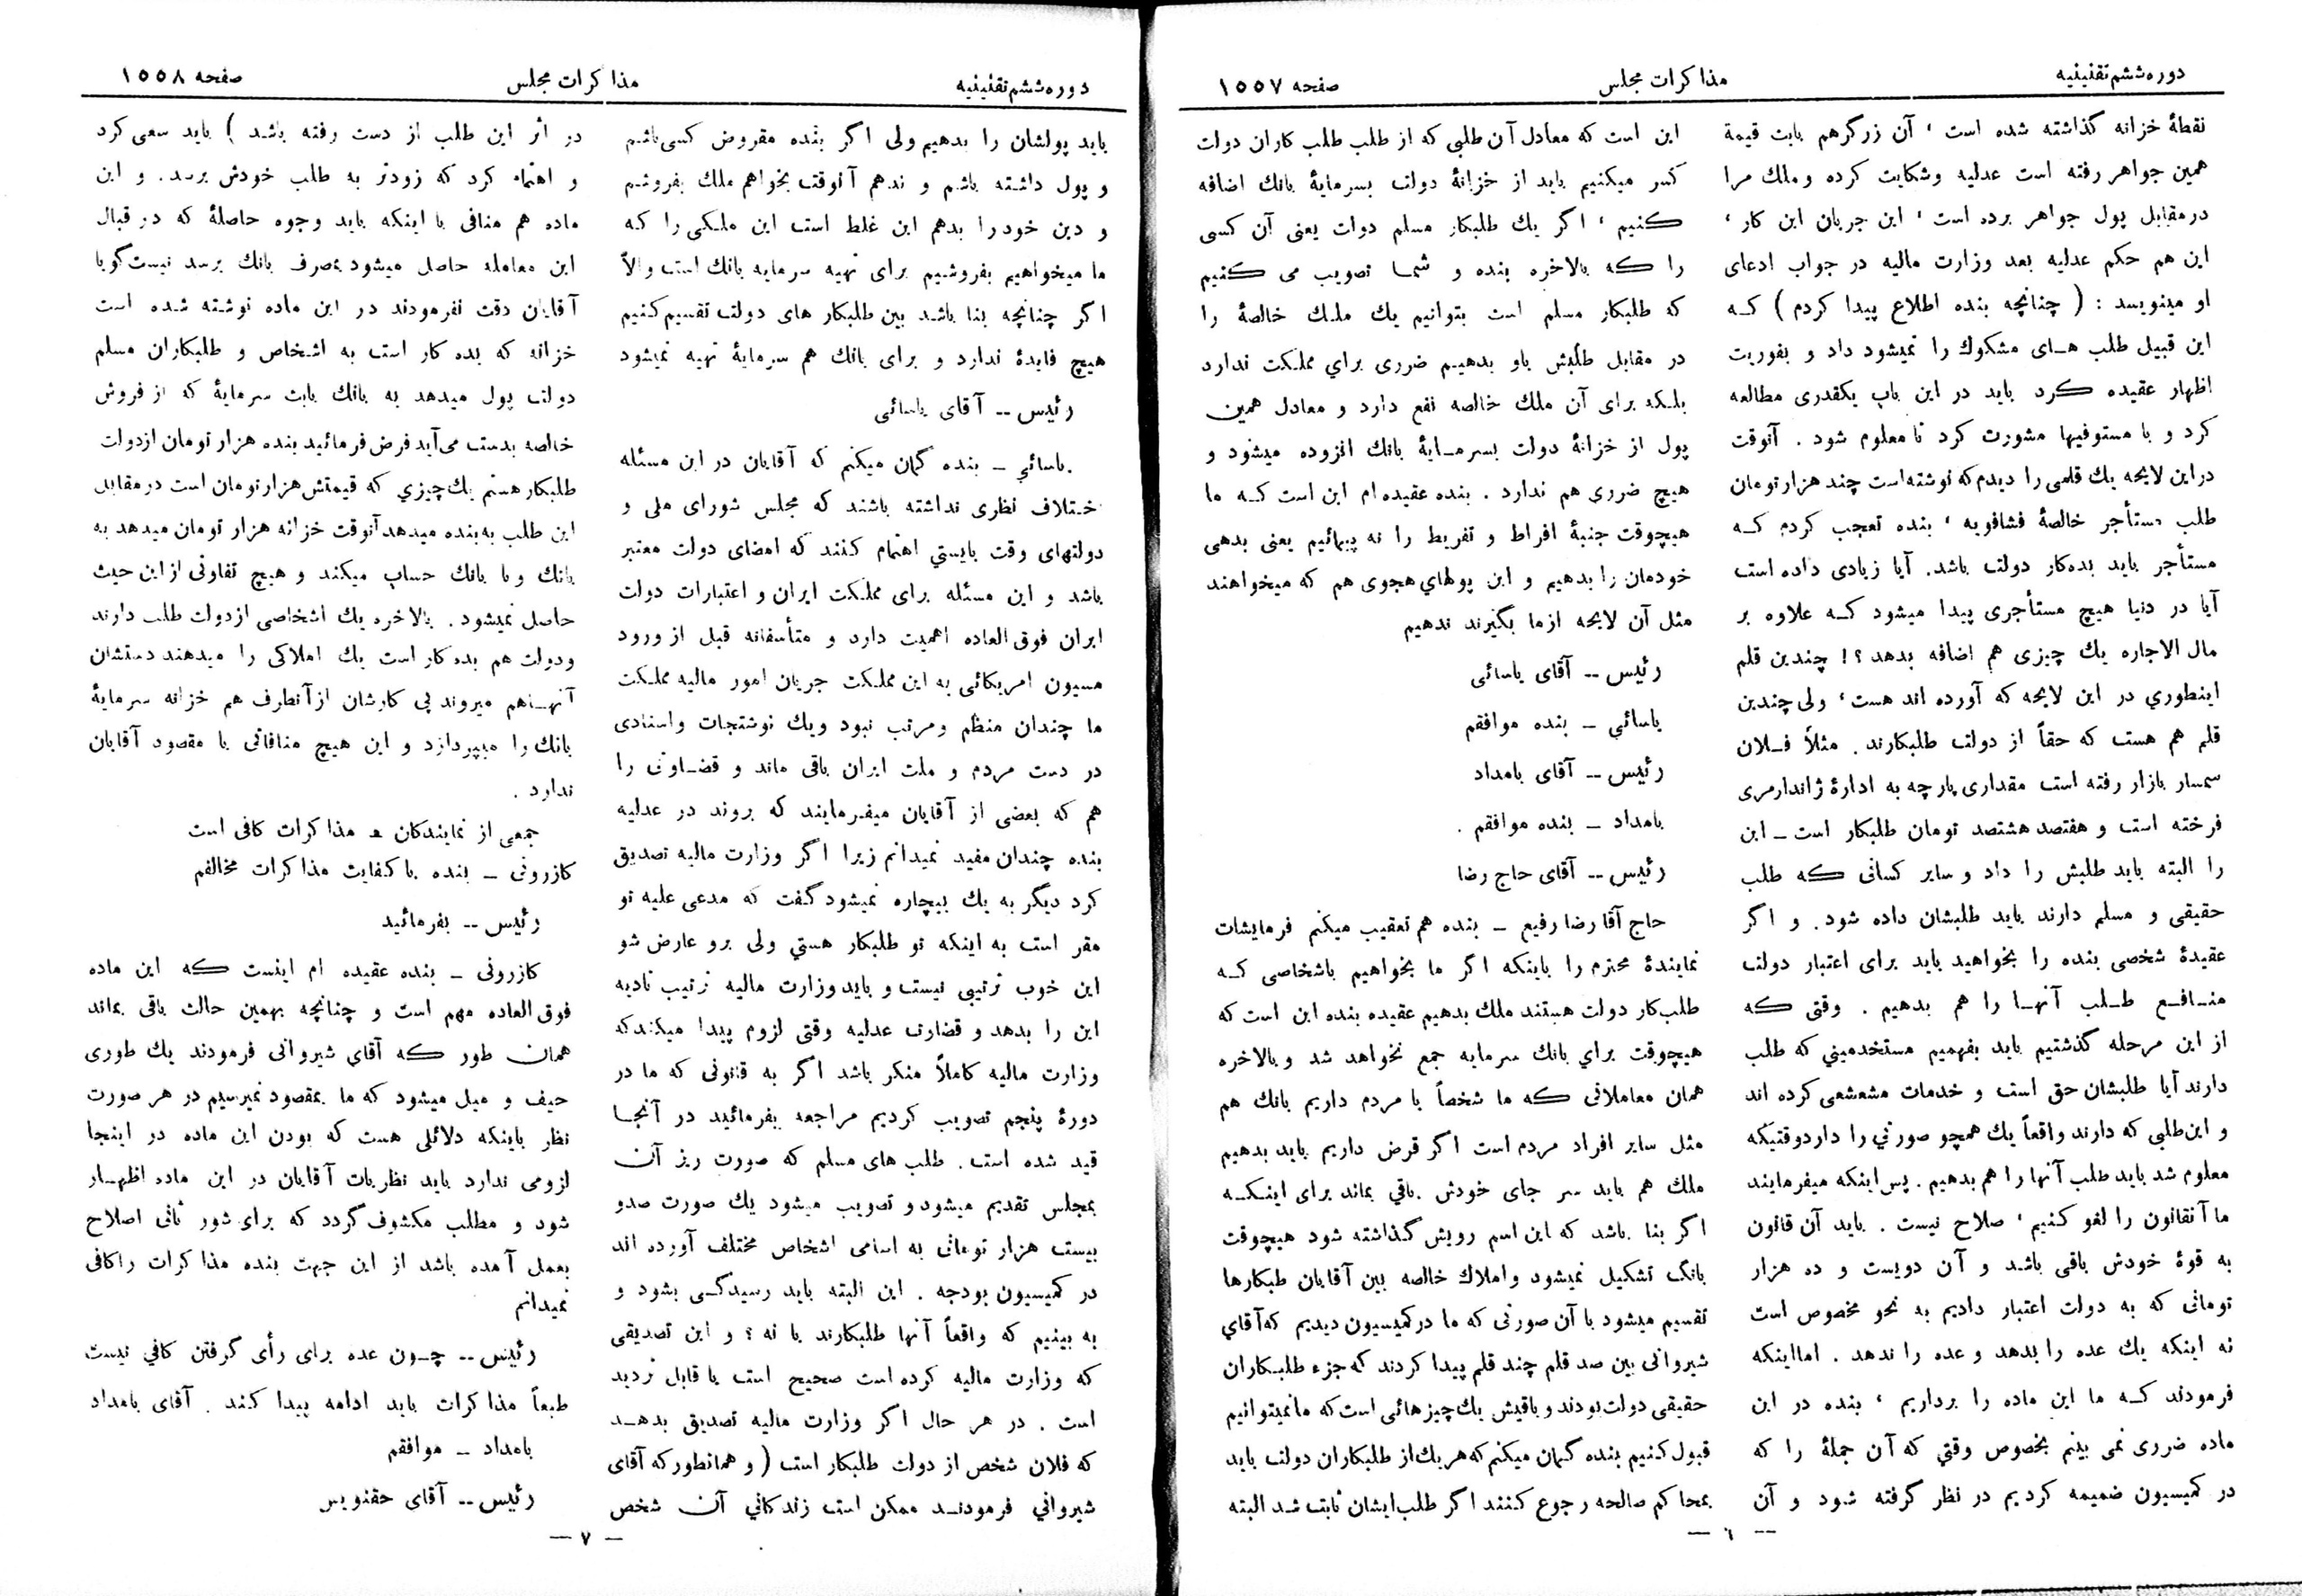 دوره ششم تقنینیه
مذاکرات مجلس
صفحه ۱۵۵۷
نقطهٔ خزانه گذاشته شده است ، آن زرگرهم بابت قیمة
همین جواهر رفته است عدلیه وشکایت کرده وملك مرا
درمقابل پول جواهر برده است ، این جریان این کار ،
این هم حکم عدلیه بعد وزارت مالیه در جواب ادعای
او مینویسد : ( چنانچه بنده اطلاع پیدا کردم ) کـه
این قبیل طلب هـای مشکوك را نمیشود داد و بفوریت
اظهار عقیده کرد باید در این باب یکقدری مطالعه
کرد و با مستوفیها مشورت کرد تا معلوم شود . آنوقت
دراین لایحه یك قلمی را دیدم که نوشته است چند هزارتومان
طلب مستأجر خالصهٔ فشافویه ، بنده تعجب کردم کـه
مستأجر باید بده‌کار دولت باشد. آیا زیادی داده است
آیا در دنیا هیچ مستأجری پیدا میشود کـه علاوه بر
مال الاجاره یك چیزی هم اضافه بدهد ؟! چندین قلم
اینطوري در این لایحه که آورده اند هست ، ولی چندین
قلم هم هست که حقاً از دولت طلبکارند . مثلاً فـلان
سمسار بازار رفته است مقداری پارچه به ادارهٔ ژاندارمری
فرخته است و هفتصد هشتصد تومان طلبکار است ـ این
را البته باید طلبش را داد و سایر کسانی که طلب
حقیقی و مسلم دارند باید طلبشان داده شود . و اگر
عقیدهٔ شخصی بنده را بخواهید باید برای اعتبار دولت
منـافـع طـلب آنهـا را هم بدهیم . وقتی که
از این مرحله گذشتیم باید بفهمیم مستخدمیني که طلب
دارند آیا طلبشان حق است و خدمات مشعشعی کرده اند
و این‌طلبی که دارند واقعاً یك همچو صورتي را داردوقتیکه
معلوم شد باید طلب آنها را هم بدهیم . پس اینکه میفرمایند
ما آنقانون را لغو کنیم ، صلاح نیست . باید آن قانون
به قوهٔ خودش باقی باشد و آن دویست و ده هزار
تومانی که به دولت اعتبار دادیم به نحو مخصوص است
نه اینکه یك عده را بدهد و عده را ندهد . امااینکه
فرمودند کـه ما این ماده را برداریم ، بنده در این
ماده ضرری نمی بینم بخصوص وقتي که آن جملهٔ را که
در کمیسیون ضمیمه کردیم در نظر گرفته شود و آن
این است که معادل آن طلبی که از طلب طلب کاران دولت
کسر میکنیم باید از خزانهٔ دولت بسرمایهٔ بانك اضافه
کنیم ، اگر یك طلبکار مسلم دوات یعنی آن کسی
را که بالاخره بنده و شما تصویب می کنیم
که طلبکار مسلم است بتوانیم یك ملك خالصهٔ را
در مقابل طلبش باو بدهیـم ضرری براي مملکت ندارد
بلـکه برای آن ملك خالصه نفع دارد و معادل همین
پول از خزانهٔ دولت بسرمـایهٔ بانك افزوده میشود و
هیچ ضرري هم ندارد . بنده عقیده ام این است کـه ما
هیچوقت جنبهٔ افراط و تفریط را نه پیمائیم یعنی بدهی
خودمان را بدهیم و این پولهاي هجوی هم که میخواهند
مثل آن لایحه ازما بگیرند ندهیم
رئیس -- آقای یاسائی
یاسائي ـ بنده موافقم
رئیس -- آقای بامداد
بامداد ـ بنده موافقم .
رئیس -- آقای حاج رضا
حاج آقا رضا رفیع ـ بنده هم تعقیب میکنم فرمایشات
نمایندهٔ محترم را باینکه اگر ما بخواهیم باشخاصی کـه
طلب‌کار دولت هستند ملك بدهیم عقیده بنده این است که
هیچوقت براي بانك سرمایه جمع نخواهد شد و بالاخره
همان معاملاتی که ما شخصاً با مردم داریم بانك هم
مثل سایر افراد مردم است اگر قرض داریم باید بدهیم
ملك هم باید سر جای خودش باقي بماند برای اینـکـه
اگر بنا باشد که این اسم رویش گذاشته شود هیچوقت
بانگ تشکیل نمیشود و املاك خالصه بین آقایان طبکارها
تقسیم میشود با آن صورتی که ما درکمیسیون دیدیم که آقاي
شیروانی بین صد قلم چند قلم پیدا کردند که جزء طلبکاران
حقیقی دولت بودند و باقیش یك چیزهائی است که ما نمیتوانیم
قبول کنیم بنده گمان میکنم که هریك از طلبکاران دولت باید
بمحاکم صالحه رجوع کنند اگر طلب ایشان ثابت شد البته
— ٦ —
دوره ششم تقنینیه
مذاکرات مجلس
صفحه ۱۵۵۸
باید پولشان را بدهیم ولی اگر بنده مقروض کسی باشم
و پول داشته باشم و ندهم آنوقت بخواهم ملك بفروشم
و دین خود را بدهم این غلط است این ملـکی را کـه
ما میخواهیم بفروشیم برای تهیه سرمایه بانك است والاّ
اگر چنانچه بنا باشد بین طلبکار های دولت تقسیم کنیم
هیچ فایدهٔ ندارد و برای بانك هم سرمایهٔ تهیه نمیشود
رئیس -- آقای یاسائی
یاسائي ـ بنده گمان میکنم که آقایان در این مسئله
ختلاف نظری نداشته باشند که مجلس شورای ملی و
دولتهای وقت بایستي اهتمام کنند که امضای دولت معتبر
باشد و این مسئله برای مملکت ایران و اعتبارات دولت
ایران فوق العاده اهمیت دارد و متأسفانه قبل از ورود
مسیون امریکائی به این مملکت جریان امور مالیه مملکت
ما چندان منظم ومرتب نبود ویك نوشتجات واسنادی
در دست مردم و ملت ایران باقی ماند و قضـاوتی را
هم که بعضی از آقایان میفـرمایند که بروند در عدلیه
بنده چندان مفید نمیدانم زیرا اگر وزارت مالیه تصدیق
کرد دیگر به یك بیچاره نمیشود گفت که مدعی علیه تو
مقر است به اینکه تو طلبکار هستي ولی برو عارض شو
این خوب ترتیبی نیست و باید وزارت مالیه ترتیب تادیه
این را بدهد و قضاوت عدلیه وقتی لزوم پیدا میکندکه
وزارت مالیه کاملاً منکر باشد اگر به قانونی که ما در
دورهٔ پنجم تصویب کردیم مراجعه بفرمائید در آنجـا
قید شده است . طلب های مسلم که صورت ریز آن
بمجلس تقدیم میشود و تصویب میشود یك صورت صدو
بیست هزار تومانی به اسامی اشخاص مختلف آورده اند
در کمیسیون بودجه . این البته باید رسیدگـی بشود و
به بینیم که واقعاً آنها طلبکارند یا نه ؟ و این تصدیقی
که وزارت مالیه کرده است صحیح است یا قابل تردید
است . در هر حال اگر وزارت مالیه تصدیق بدهـد
که فلان شخص از دولت طلبکار است ( و همانطور که آقای
شیرواني فرمودنـد ممکن است زندگانی آن شخص
در اثر این طلب از دست رفته باشد ) باید سعی کرد
و اهتمام کرد که زودتر به طلب خودش برسد . و این
ماده هم منافی با اینکه باید وجوه حاصلهٔ که در قبال
این معامله حاصل میشود بمصرف بانك برسد نیست گویا
آقایان دقت نفرمودند در این ماده نوشته شده است
خزانه که بده کار است به اشخاص و طلبکاران مسلم
دولت پول میدهد به بانك بابت سرمایهٔ که از فروش
خالصه بدست می‌آید فرض فرمائید بنده هزار تومان ازدولت
طلبکار هستم یك چیزي که قیمتش هزار تومان است در مقابل
این طلب به بنده میدهد آنوقت خزانه هزار تومان میدهد به
بانك و با بانك حساب میکند و هیچ تفاوتی از این حیث
حاصل نمیشود . بالاخره یك اشخاصی ازدولت طلب دارند
ودولت هم بده کار است یك املاکی را میدهند دستشان
آنهـاهم میروند پی کارشان ازآنطرف هم خزانه سرمایهٔ
بانك را میپردازد و این هیچ منافاتی با مقصود آقایان
ندارد .
جمعی از نمایندگان ـ مذاکرات کافی است
کازرونی ـ بنده باکفایت مذاکرات مخالفم
رئیس -- بفرمائید
کازرونی ـ بنده عقیده ام اینست که این ماده
فوق العاده مهم است و چنانچه بهمین حالت باقی بماند
همان طور که آقاي شیروانی فرمودند یك طوری
حیف و میل میشود که ما بمقصود نمیرسیم در هر صورت
نظر باینکه دلائلی هست که بودن این ماده در اینجا
لزومی ندارد باید نظریات آقایان در این ماده اظهـار
شود و مطلب مکشوف گردد که برای شور ثانی اصلاح
بعمل آمده باشد از این جهت بنده مذاکرات راکافی
نمیدانم
رئیس -- چـون عده برای رأی گرفتن کافي نیست
طبعاً مذاکرات باید ادامه پیدا کند . آقای بامداد
بامداد ـ موافقم
رئیس -- آقای حقنویس
— ۷ —